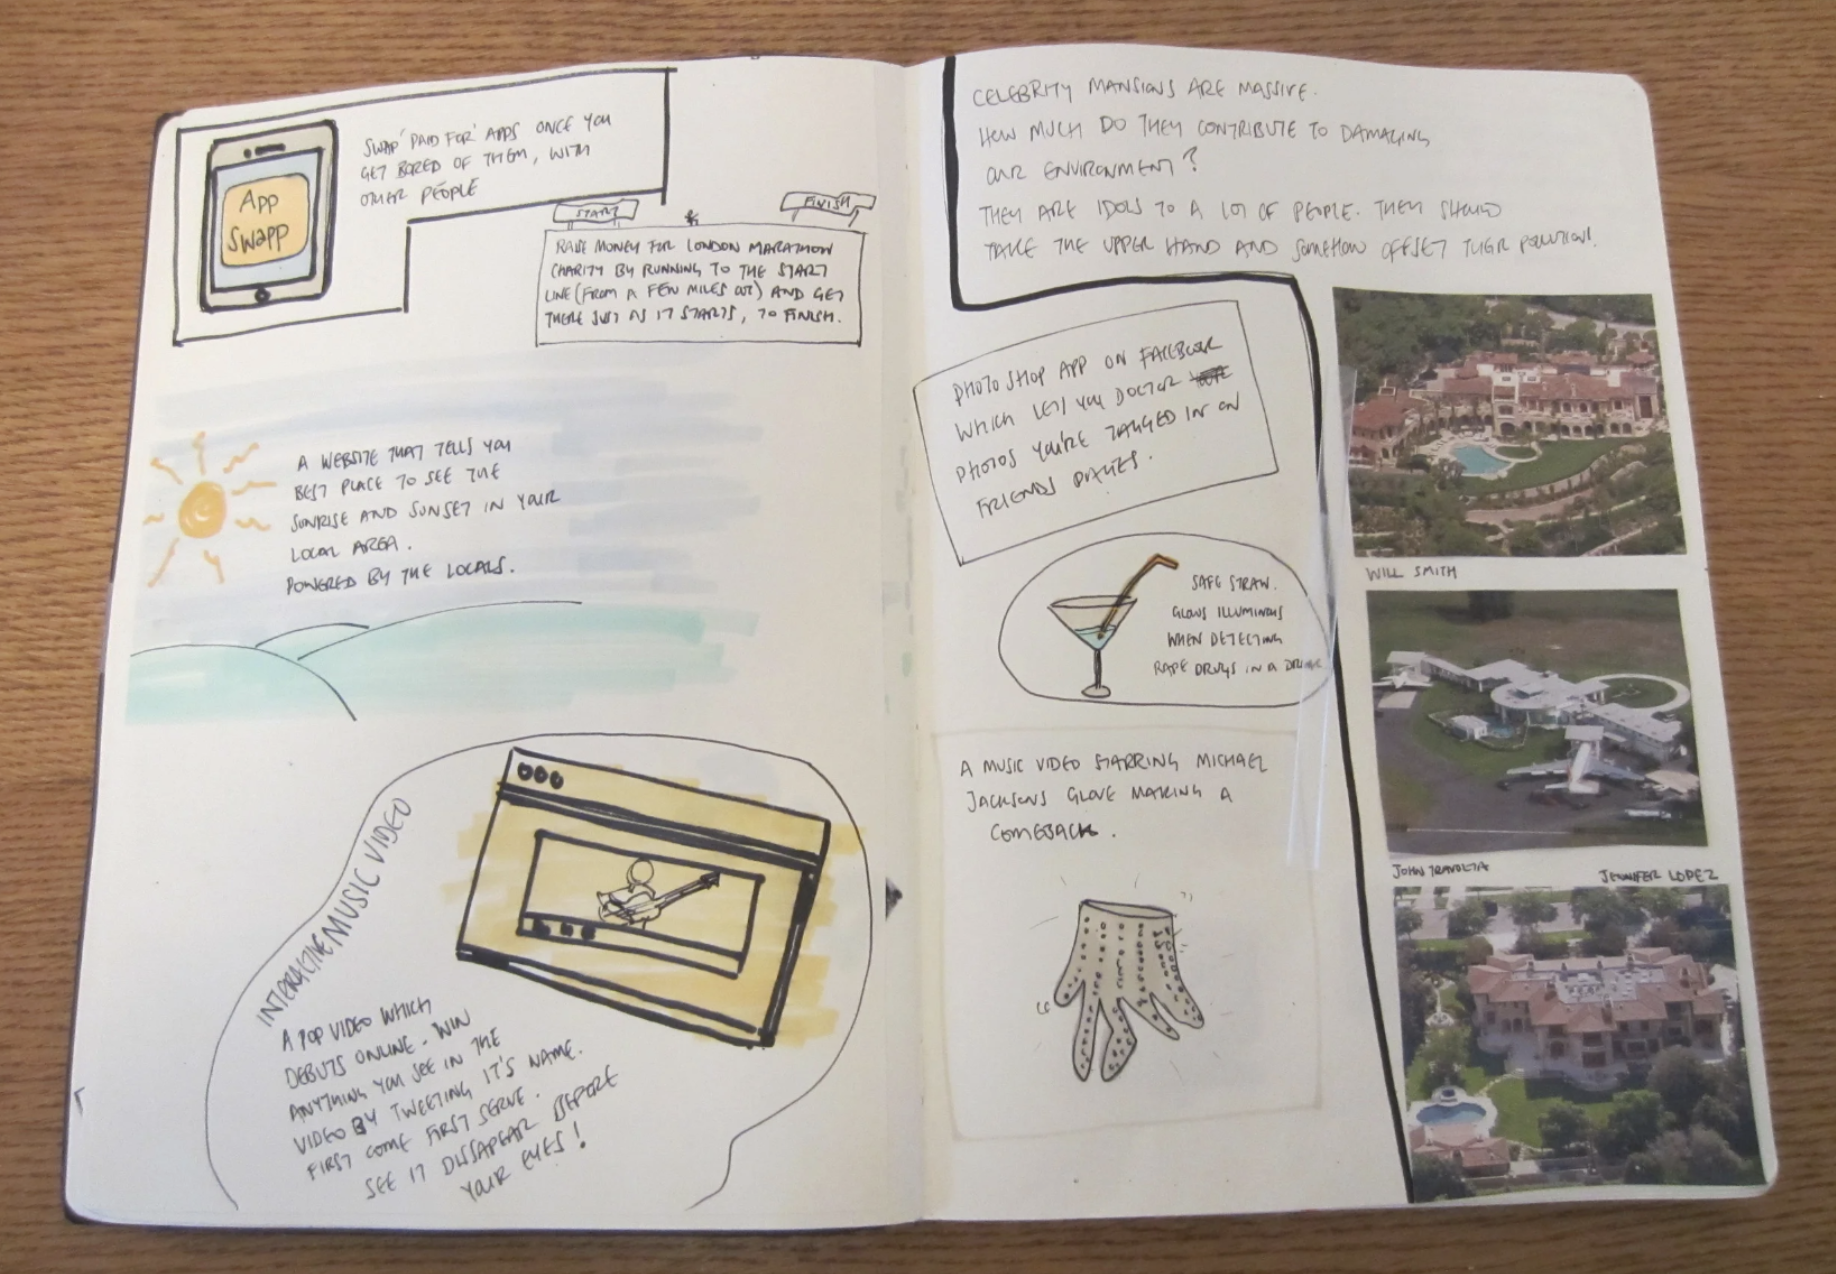 App
Swapp
SWAP 'PAID FOR' APPS ONCE YOU
GET BORED OF THEM, WITH
OTHER PEOPLE
START
FINISH
RAISE MONEY FOR LONDON MARATHON
CHARITY BY RUNNING TO THE START
LINE (FROM A FEW MILES OUT) AND GET
THERE JUST AS IT STARTS, TO FINISH.
A WEBSITE THAT TELLS YOU
BEST PLACE TO SEE THE
SUNRISE AND SUNSET IN YOUR
LOCAL AREA.
POWERED BY THE LOCALS.
INTERACTIVE MUSIC VIDEO
A POP VIDEO WHICH
DEBUTS ONLINE. WIN
ANYTHING YOU SEE IN THE
VIDEO BY TWEETING IT'S NAME.
FIRST COME FIRST SERVE.
SEE IT DISSAPEAR BEFORE
YOUR EYES!
CELEBRITY MANSIONS ARE MASSIVE.
HOW MUCH DO THEY CONTRIBUTE TO DAMAGING
OUR ENVIRONMENT?
THEY ARE IDOLS TO A LOT OF PEOPLE. THEY SHOULD
TAKE THE UPPER HAND AND SOMEHOW OFFSET THEIR POLLUTION!
PHOTOSHOP APP ON FACEBOOK
WHICH LETS YOU DOCTOR
PHOTOS YOU'RE TAGGED IN ON
FRIENDS PAGES.
SAFE STRAW.
GLOWS ILLUMINOUS
WHEN DETECTING
RAPE DRUGS IN A DRINK
A MUSIC VIDEO STARRING MICHAEL
JACKSONS GLOVE MAKING A
COMEBACK.
WILL SMITH
JOHN TRAVOLTA
JENNIFER LOPEZ